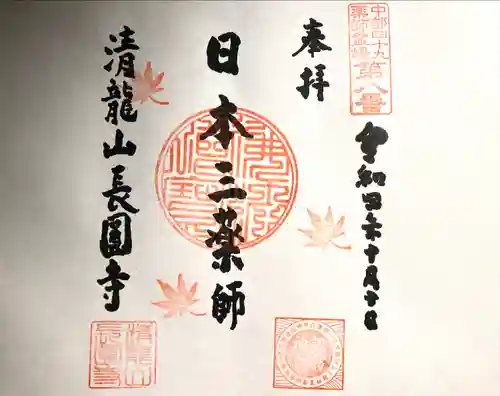 中部四十九
薬師霊場
第八番
奉拝
令和四年十月十日
日本三薬師
清龍山長圓寺